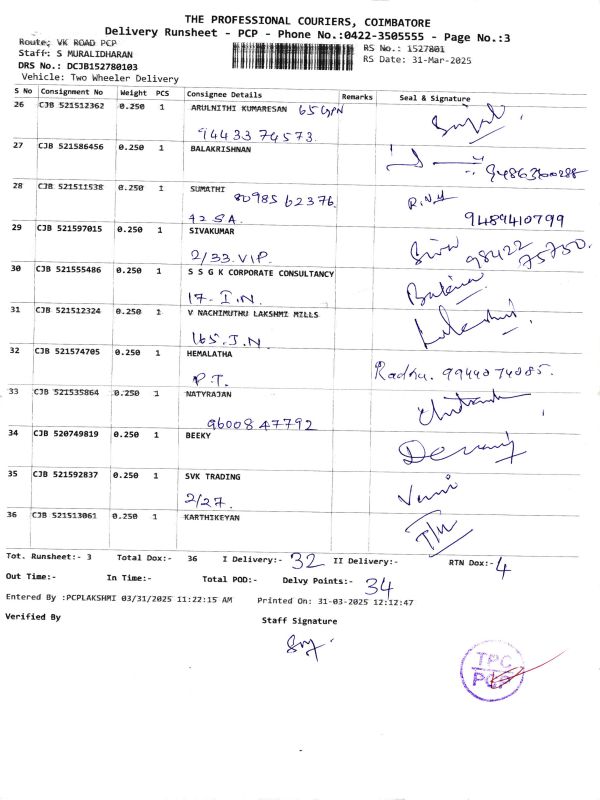 THE PROFESSIONAL COURIERS, COIMBATORE
Delivery Runsheet - PCP - Phone No.:0422-3505555 - Page No.:3
Route: VK ROAD PCP
RS No.: 1527801
Staff: S MURALIDHARAN
RS Date: 31-Mar-2025
DRS No.: DCJB152780103
Vehicle: Two Wheeler Delivery
S No Consignment No Weight PCS Consignee Details Remarks Seal & Signature
26 CJB 521512362 0.250 1 ARULNITHI KUMARESAN 65 GPN
9443374573
27 CJB 521586456 0.250 1 BALAKRISHNAN
28 CJB 521511538 0.250 1 SUMATHI 80985 62376
42 S.A. 9489410799
29 CJB 521597015 0.250 1 SIVAKUMAR Siva 98422
2/33. V.I.P. 75750.
30 CJB 521555486 0.250 1 S S G K CORPORATE CONSULTANCY
17. I.N.
31 CJB 521512324 0.250 1 V NACHIMUTHU LAKSHMI MILLS
165. I.N.
32 CJB 521574705 0.250 1 HEMALATHA Radha. 9944074085.
P.T.
33 CJB 521535864 0.250 1 NATYRAJAN
96008 47792
34 CJB 520749819 0.250 1 BEEKY
35 CJB 521592837 0.250 1 SVK TRADING
2/27.
36 CJB 521513061 0.250 1 KARTHIKEYAN
Tot. Runsheet:- 3 Total Dox:- 36 I Delivery:- 32 II Delivery:- RTN Dox:- 4
Out Time:- In Time:- Total POD:- Delvy Points:- 34
Entered By :PCPLAKSHMI 03/31/2025 11:22:15 AM Printed On: 31-03-2025 12:12:47
Verified By Staff Signature
TPC
PCP